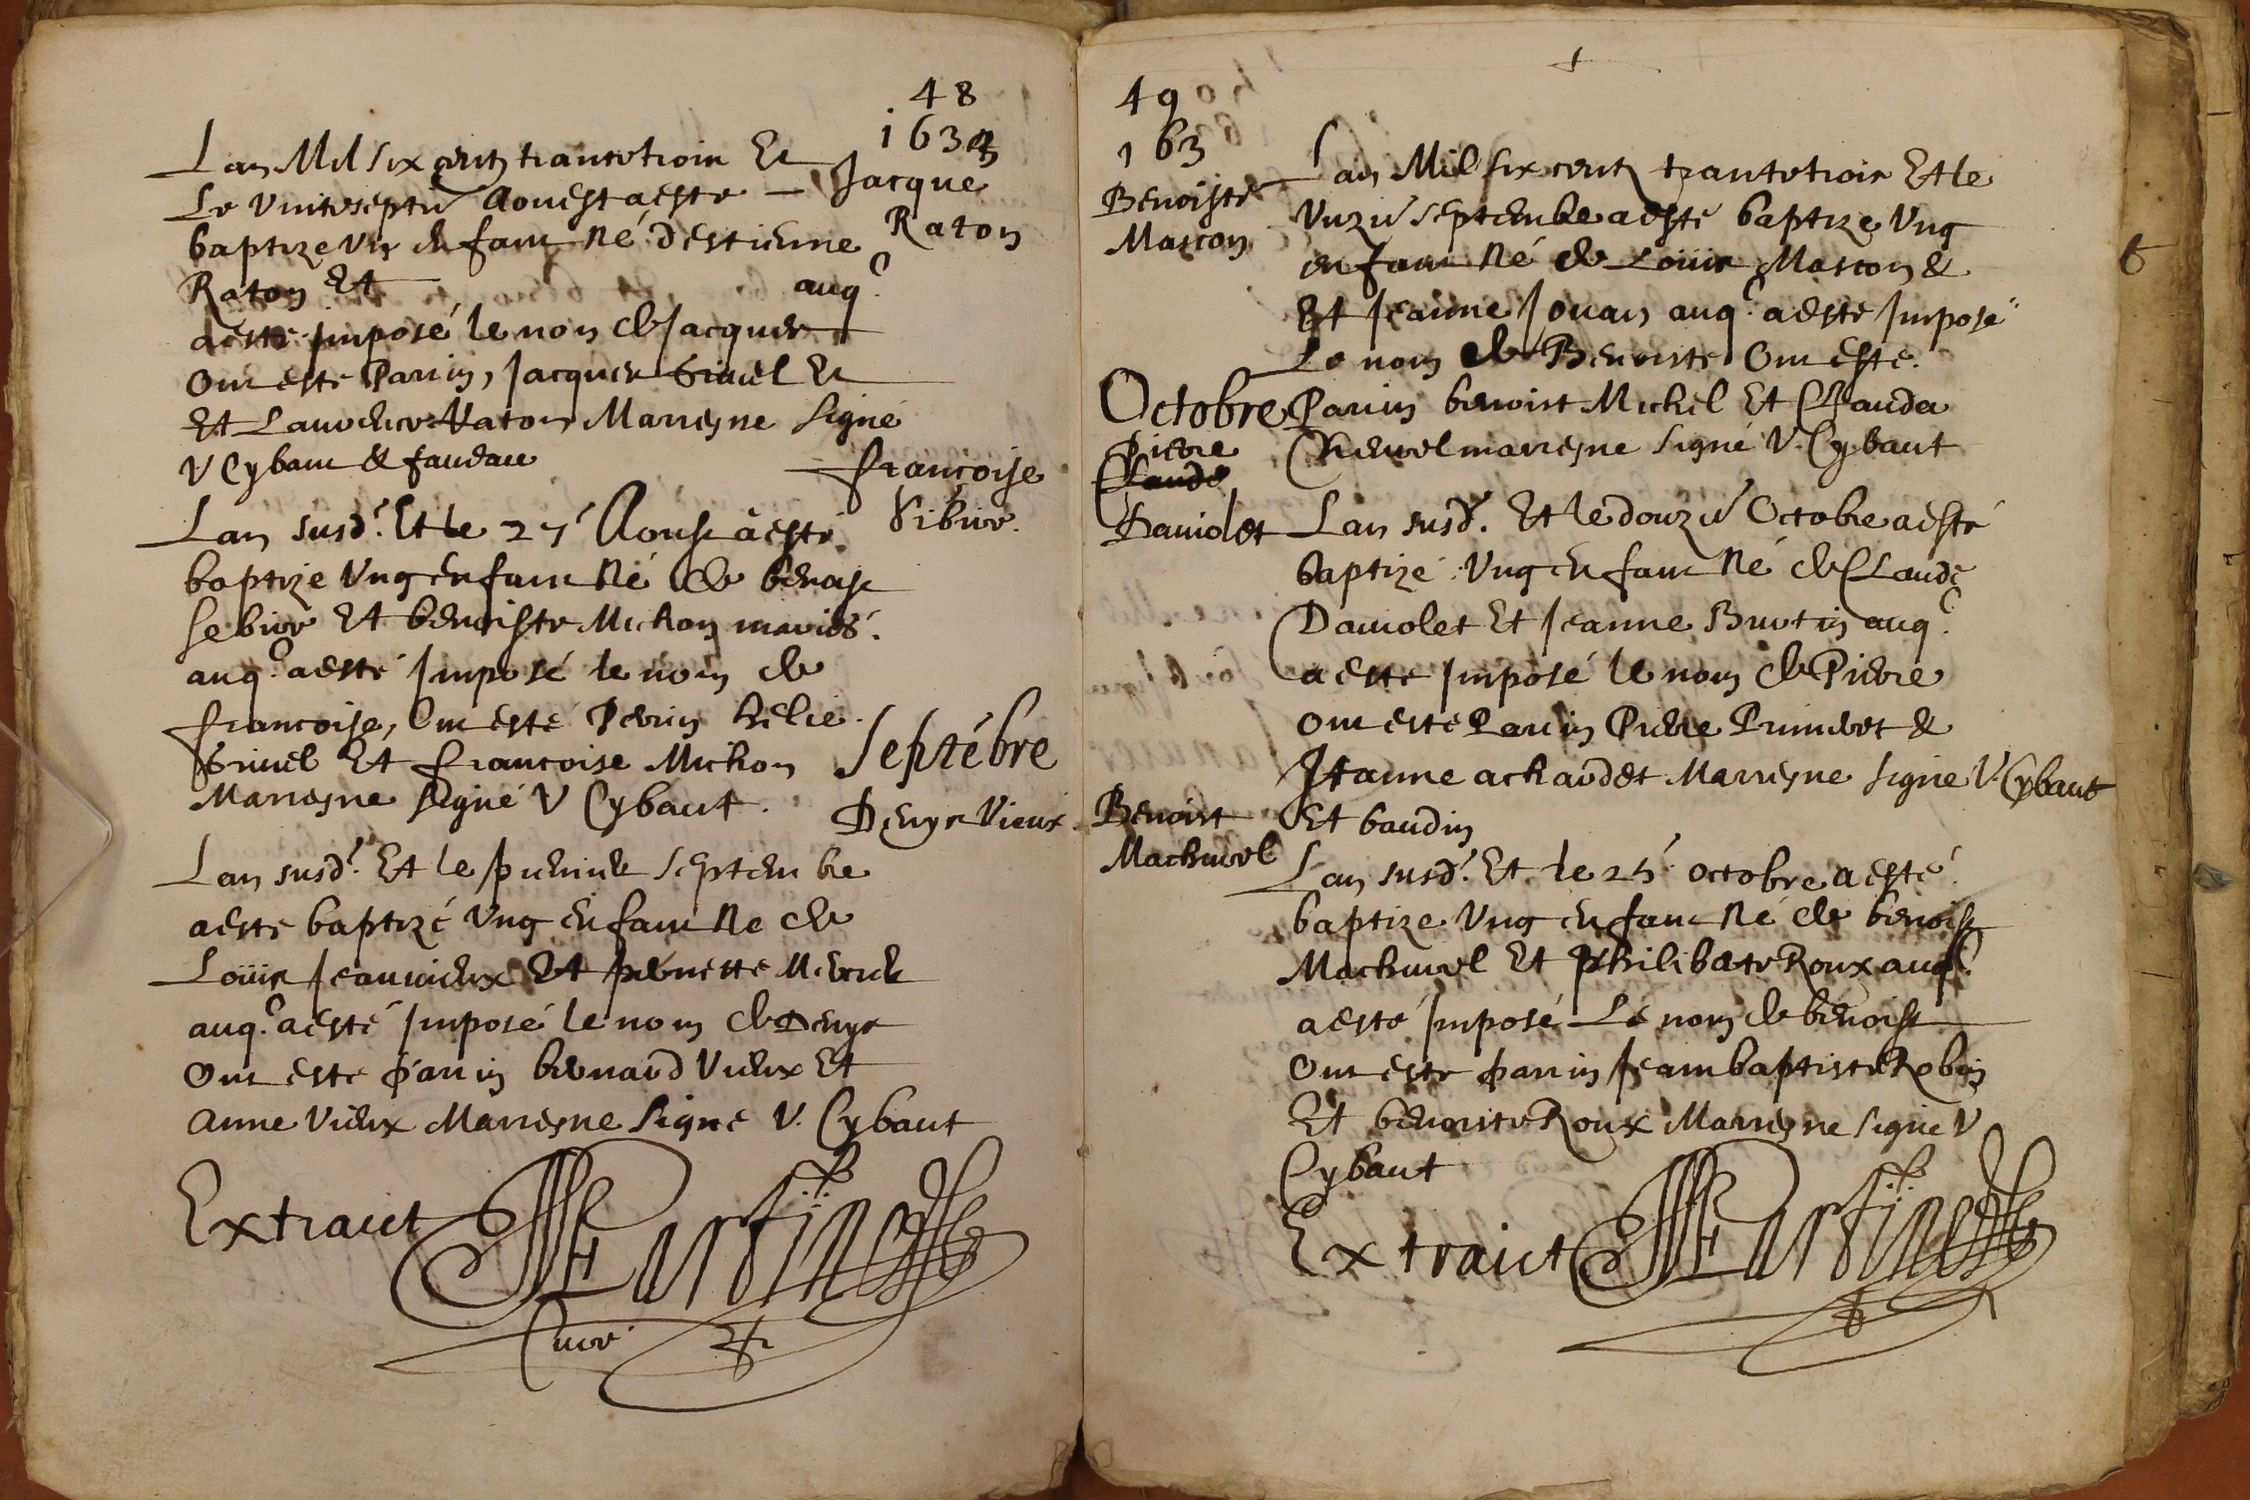 48
1633
Jacque
Raton
Lan Mil six centz trante trois Et
Le vinteseptie Aouest a este
baptize ung enfant Né d'estienne
Raton Et auq.
a este imposé le nom de Jacques
Ont este Parrin, Jacques Grivel Et
Et Laurence Raton Marreyne Signé
V Cybaut & faudau
francoise
Sibive.
Lan susd. Et le 27 Aoust a esté
baptize Ung enfant Né de benoist
Sebive Et benoiste Michon mariés.
auq. a esté Imposé le nom de
francoise, Ont esté Perrin helie
Grivel Et francoise Michon
Marreyne signé V Cybaut.
Septébre
Denys Vieux
Lan susd. Et le premier Septembre
a este baptizé Ung Enfant Né de
Loüis Jeanvieux Et pernette Mercier
auq. a esté Imposé le nom de Denys
Ont este parrin bernard Vieux Et
Anne Vieux Marreyne Signe V. Cybaut
Extraict
Cure
49
163
Benoiste
Mascon
Lan Mil six centz trante trois Et le
Unzie septembre a esté baptize Ung
enfant Né de Loüis Mascon &
Et Jeanne Jouan auq. a este Imposé
Le nom de Benoiste Ont esté
Parrin benoist Michel Et Clauda
Chervel marreyne Signé V. Cybaut
Octobre
Pierre
Claude
Daviolet
Lan susd. Et le douzie Octobre a esté
baptizé Ung enfant Né de Claude
Daviolet Et Jeanne Burtin auq.
a este Imposé le nom de Pierre
ont este Parrin Pierre Primevert &
Jeanne achaudet Marreyne Signe V. Cybaut
Et baudin
Benoist
Machurel
Lan susd. Et le 25 octobre a esté
baptize Ung enfant Né de benoist
Machurel Et Philiberte Roux auq.
a esté Imposé Le nom de benoist
Ont este parrin Jean baptiste Robin
Et benoiste Roux Marreyne signé V
Cybaut
Extraict
6